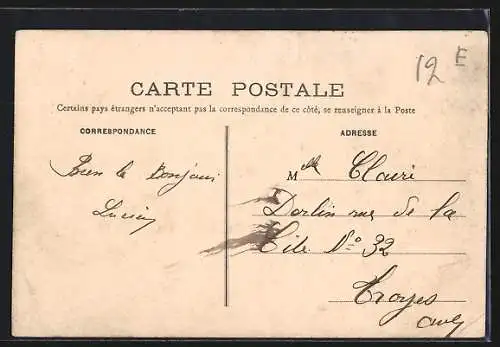 12 E
CARTE POSTALE
Certains pays étrangers n'acceptant pas la correspondance de ce côté, se renseigner à la Poste
CORRESPONDANCE
ADRESSE
Bien le Bonjour
Lucien
Mlle Claire
Dorlin rue de la
Cité No 32
Troyes
Aube